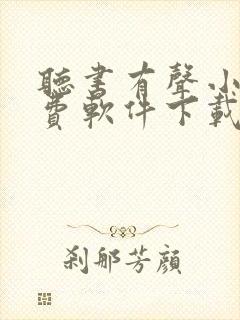 聽書有聲小
費軟件下載
刹那芳顏